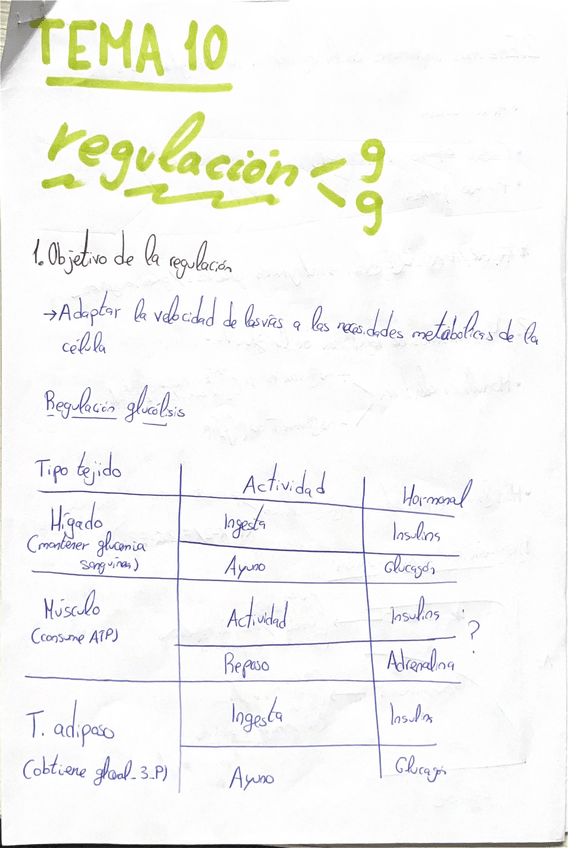 TEMA 10
regulación < g
g
1. Objetivo de la regulación
→ Adaptar la velocidad de las vías a las necesidades metabólicas de la
célula
Regulación glucólisis
Tipo tejido Actividad Hormonal
Hígado Ingesta Insulina
(mantener glucemia
sanguínea) Ayuno Glucagón
Músculo Actividad Insulina ?
(consume ATP)
Reposo Adrenalina
T. adiposo Ingesta Insulina
(obtiene glicerol-3-P) Ayuno Glucagón